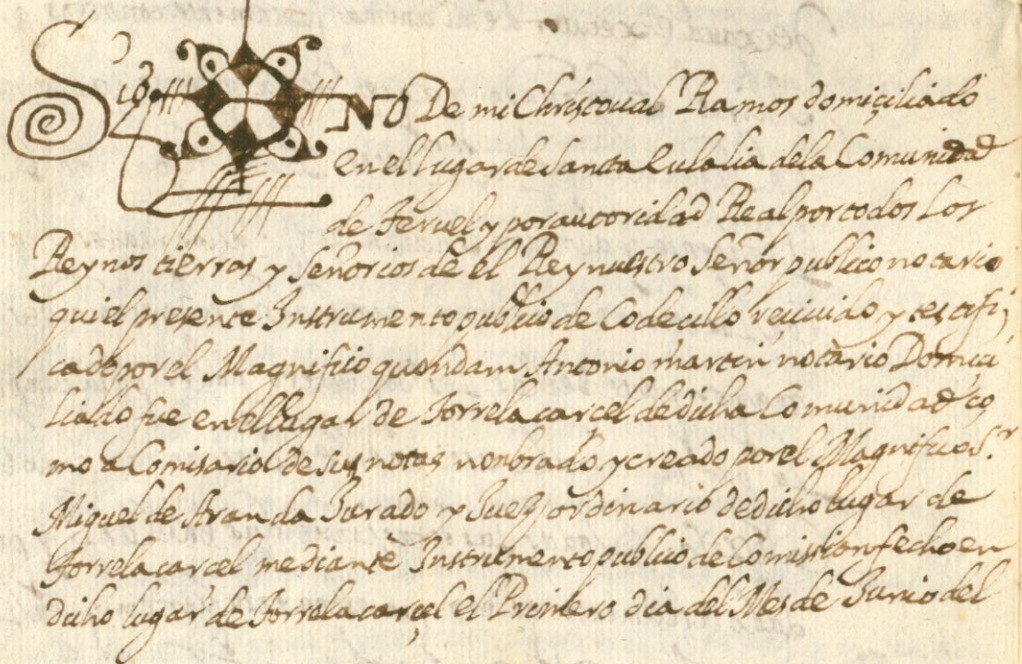 Sig NO De mi Christoual Ramos domiçiliado
en el lugar de Santa Eulalia de la Comunidad
de Teruel y por autoridad Real por todos Los
Reynos tierras y señorios de el Rey nuestro señor publico notario
qui el presente Instrumento publico de Codecillo reciuido y testifi
cado por el Magnifico quondam Antonio martin notario Domici
liado fue en el lugar de Torre la carcel de dicha Comunidad co
mo a Comisario de sus notas nonbrado y creado por el Magnifico S.r
Miguel de Aranda Jurado y Juez ordinario de dicho lugar de
Torre la carcel mediante Instrumento publico de Comission fecho en
dicho lugar de Torre la carçel el Primero dia del Mes de Junio del